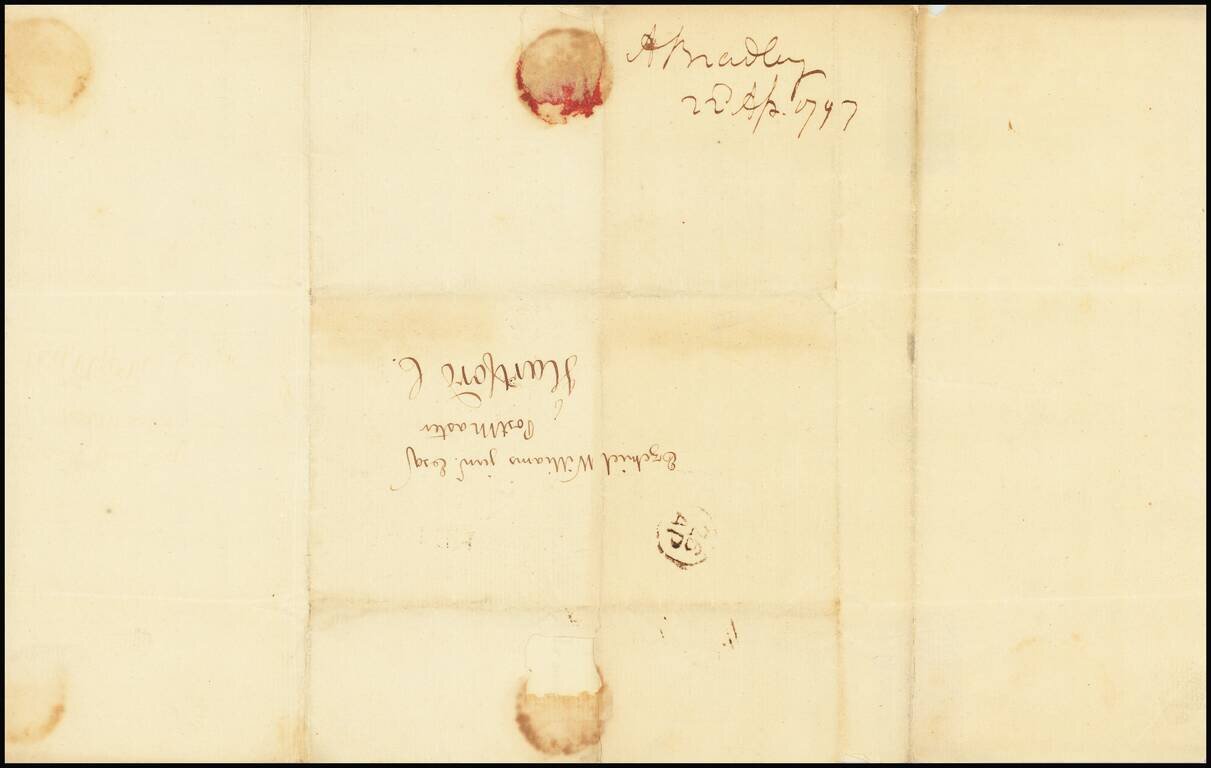 A Bradley
22d Ap. 1797
Ezekiel Williams junr. Esqr
PostMaster
Hartford C.
AP